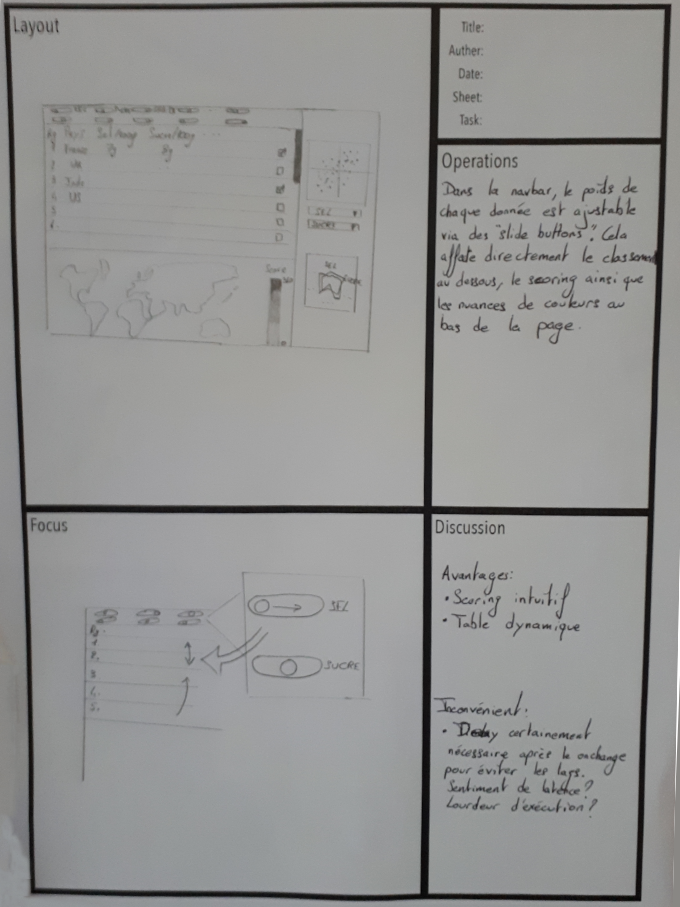 Layout
Rg Pays Sel/100g Sucre/100g ...
1 France
2
3 Inde
4 US
5
6.
SEL
SUCRE
Score
Title:
Auther:
Date:
Sheet:
Task:
Operations
Dans la navbar, le poids de
chaque donnée est ajustable
via des "slide buttons". Cela
affate directement le classement
au dessous, le scoring ainsi que
les nuances de couleurs au
bas de la page.
Focus
Rg.
1
2.
3
4.
5.
SEL
SUCRE
Discussion
Avantages:
• Scoring intuitif
• Table dynamique
Inconvénient:
• Delay certainement
nécessaire après le onchange
pour éviter les lags.
Sentiment de latence?
Lourdeur d'exécution?